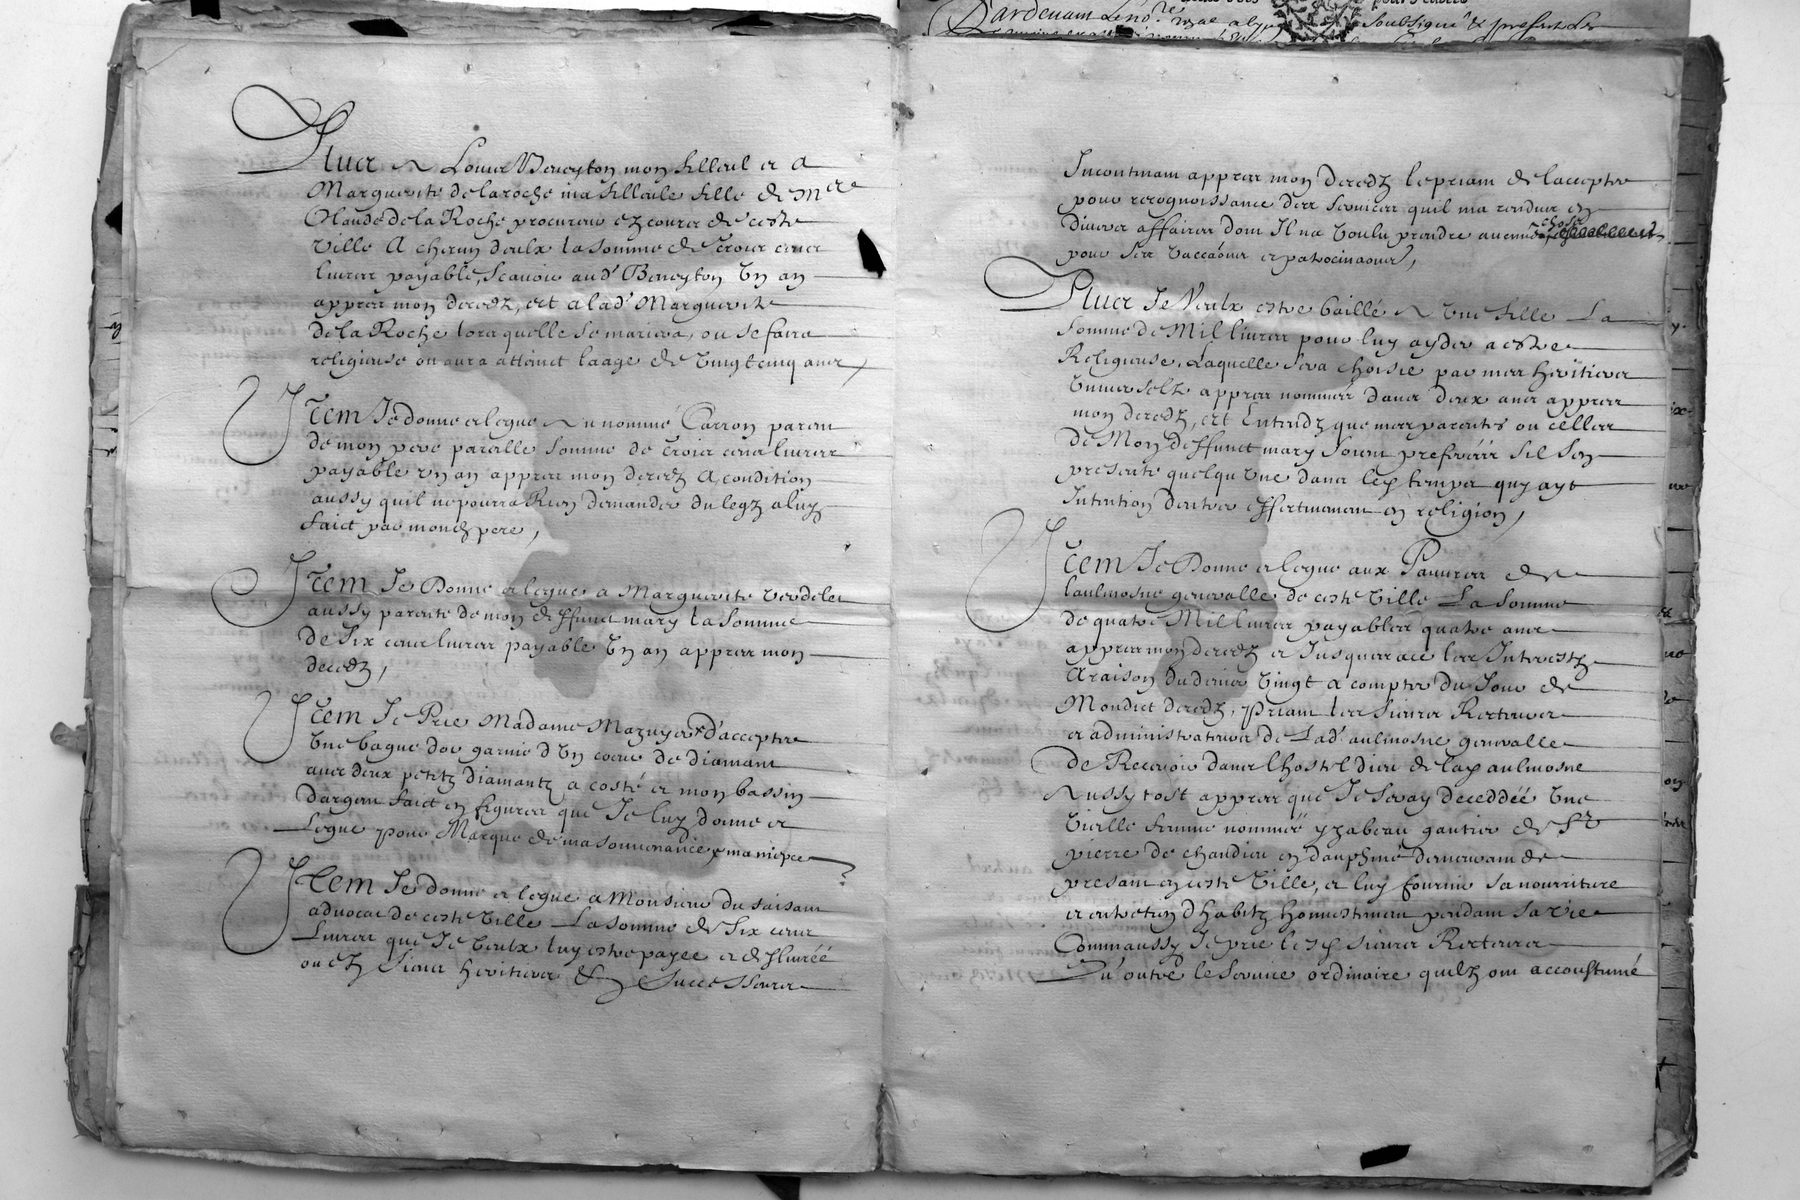 Dardenam le no.re
soubsigné & presents les
Plus A Louis Beneyton mon filleul et A
Marguerite de la roche ma filleule fille de Mere
Claude de la Roche procureur ez cours de ceste
ville A chacun d'eulx la somme de trois cens
livres payable, scavoir aud. Beneyton Un an
appres mon decedz, ett a lad. Marguerite
de la Roche lors quelle se mariera, ou se faira
religieuse ou aura attainct laage de vingtcinq ans
Item Je donne et legue A un nommé Carron parent
de mon pere pareille somme de trois cens livres
payable un an appres mon decedz A condition
aussy quil ne pourra Rien demander du legz a luy
faict par mond. pere,
Item Je Donne et legue a Marguerite verdelet
aussy parente de mon deffunct mary la somme
de Six cens livres payable Un an appres mon
decedz,
Item Je Prie Madame Mazuyer d'accepter
Une bague d'or garnie d'Un coeur de diamant
avec deux petitz diamantz a costé et mon bassin
d'argent faict en figures que Je luy donne et
Legue pour Marque de ma souvenance ma niepce
Item Je donne et legue a Monsieur du faisant
advocat de ceste Ville La somme de Six cens
Livres que Je veulx luy estre payee et deslivréé
ou ez Siens heritiers & Successeurs
Incontinant appres mon decedz le priant de l'accepter
pour recognoissance des services quil ma rendus en
divers affaires dont Il na voulu prendre aucune chose
pour ses vacca͠ons et patrocina͠ons,
Plus Je Veulx estre baillé A Une fille La
somme de Mil livres pour luy ayder a estre
Religieuse, Laquelle sera choisie par mes heritiers
Universelz appres nommés dans deux ans appres
mon decedz, ett Entendz que mes parentes ou celles
de Mon deffunct mary soient preferéés sil sen
presente quelqu'Une dans led. temps quy ayt
Intention d'entrer effectivement en religion,
Item Je Donne et legue aux Pauvres de
l'aulmosne generalle de ceste Ville La somme
de quatre Mil livres payables quatre ans
appres mon decedz et Jusques a ce les Interestz
A raison du denier Vingt a compter du Jour de
Mondict decedz, Priant les sieurs Recteurs
et administrateurs de Lad. aulmosne generalle
de Recevoir dans lhostel dieu de lad. aulmosne
Aussy tost appres que Je seray deceddéé Une
Vieille femme nommeé yzabeau gautier de St
pierre de chandieu en dauphiné demeurant de
present en ceste Ville, et luy fournir sa nourriture
et entretien d'habitz honnestement pendant sa vie
Comm'aussy Je prie lesd. sieurs Recteurs
Qu'outre le service ordinaire quilz ont accoustumé